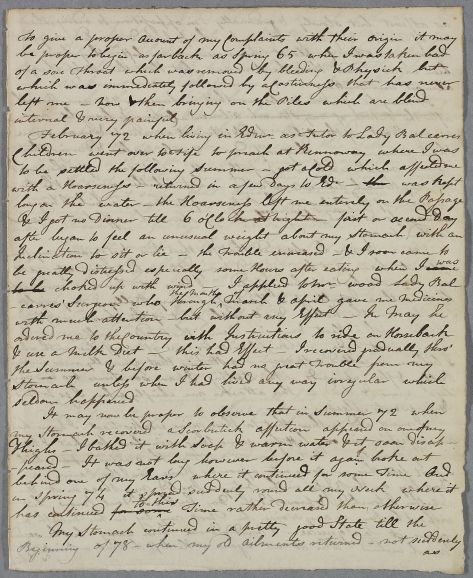 To give a proper account of my Complaints with their Origin it may
be proper to begin as far back as Spring 65 when I was taken bad
of a sore Throat which was removed by bleeding & Physick but
which was immediately followed by a Costiveness that has never
left me - now & then bringing on the Piles which are blind
internal & very painful
February 72 when living in Edinr as tutor to Lady Balcarres
Children went over to Fife to preach at Kennoway where I was
to be settled the following Summer - got a Cold which affected me
with a Hoarseness - returned in a few days to Edr - was kept
long on the water - the Hoarseness left me entirely on the Passage
& I got no Dinner till 6 oClock at night - first or second Day
after began to feel an unusual weight about my Stomach with an
Inclination to sit or lie - the Trouble increased & I soon came to
be greatly distressed especially some Hours after eating when I was
choked up with wind - I applied to Mr Wood Lady Bal
carres Surgeon who through the months March & April gave me Medicines
with much attention but without any Effect - In May he
ordered me to the Country with Instructions to ride on Horseback
& use a Milk Diet - this had Effect I recovered gradually thro'
the Summer & before winter had no great Trouble from my
Stomach unless when I had lived any way irregular which
seldom happened
It may now be proper to observe that in Summer 72 when
my Stomach recovered a Scorbutick affection appeared on one of my
Thighs - I bathed it with Soap & warm water & it soon disap
peared - It was not long however before it again broke out
behind one of my Ears where it continued for some Time And
in Spring 74 it spread suddenly round all my Neck where it
has continued to this Time rather decreased than otherwise
My Stomach continued in a pretty good State till the
Beginning of 78 - when my old ailments returned - not suddenly
as